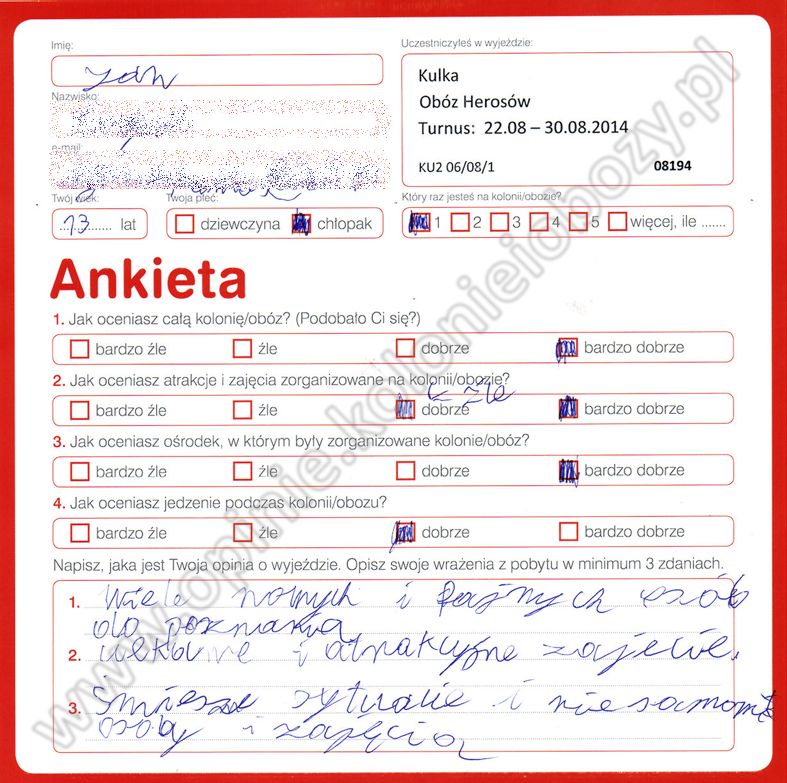 Imię:
Jan
Uczestniczyłeś w wyjeździe:
Kulka
Obóz Herosów
Turnus: 22.08 – 30.08.2014
KU2 06/08/1 08194
Nazwisko:
e-mail:
Twój wiek:
13 lat
Twoja płeć:
dziewczyna chłopak
Który raz jesteś na kolonii/obozie?
1 2 3 4 5 więcej, ile .......
Ankieta
1. Jak oceniasz całą kolonię/obóz? (Podobało Ci się?)
bardzo źle źle dobrze bardzo dobrze
2. Jak oceniasz atrakcje i zajęcia zorganizowane na kolonii/obozie?
← źle
bardzo źle źle dobrze bardzo dobrze
3. Jak oceniasz ośrodek, w którym były zorganizowane kolonie/obóz?
bardzo źle źle dobrze bardzo dobrze
4. Jak oceniasz jedzenie podczas kolonii/obozu?
bardzo źle źle dobrze bardzo dobrze
Napisz, jaka jest Twoja opinia o wyjeździe. Opisz swoje wrażenia z pobytu w minimum 3 zdaniach.
1. Wiele nowych i fajnych osób
do poznania
2. i atrakcyjne zajęcie.
3. Śmieszne sytuacje i niesamowite
osoby i zajęcia
www.opinie.kolonieiobozy.pl